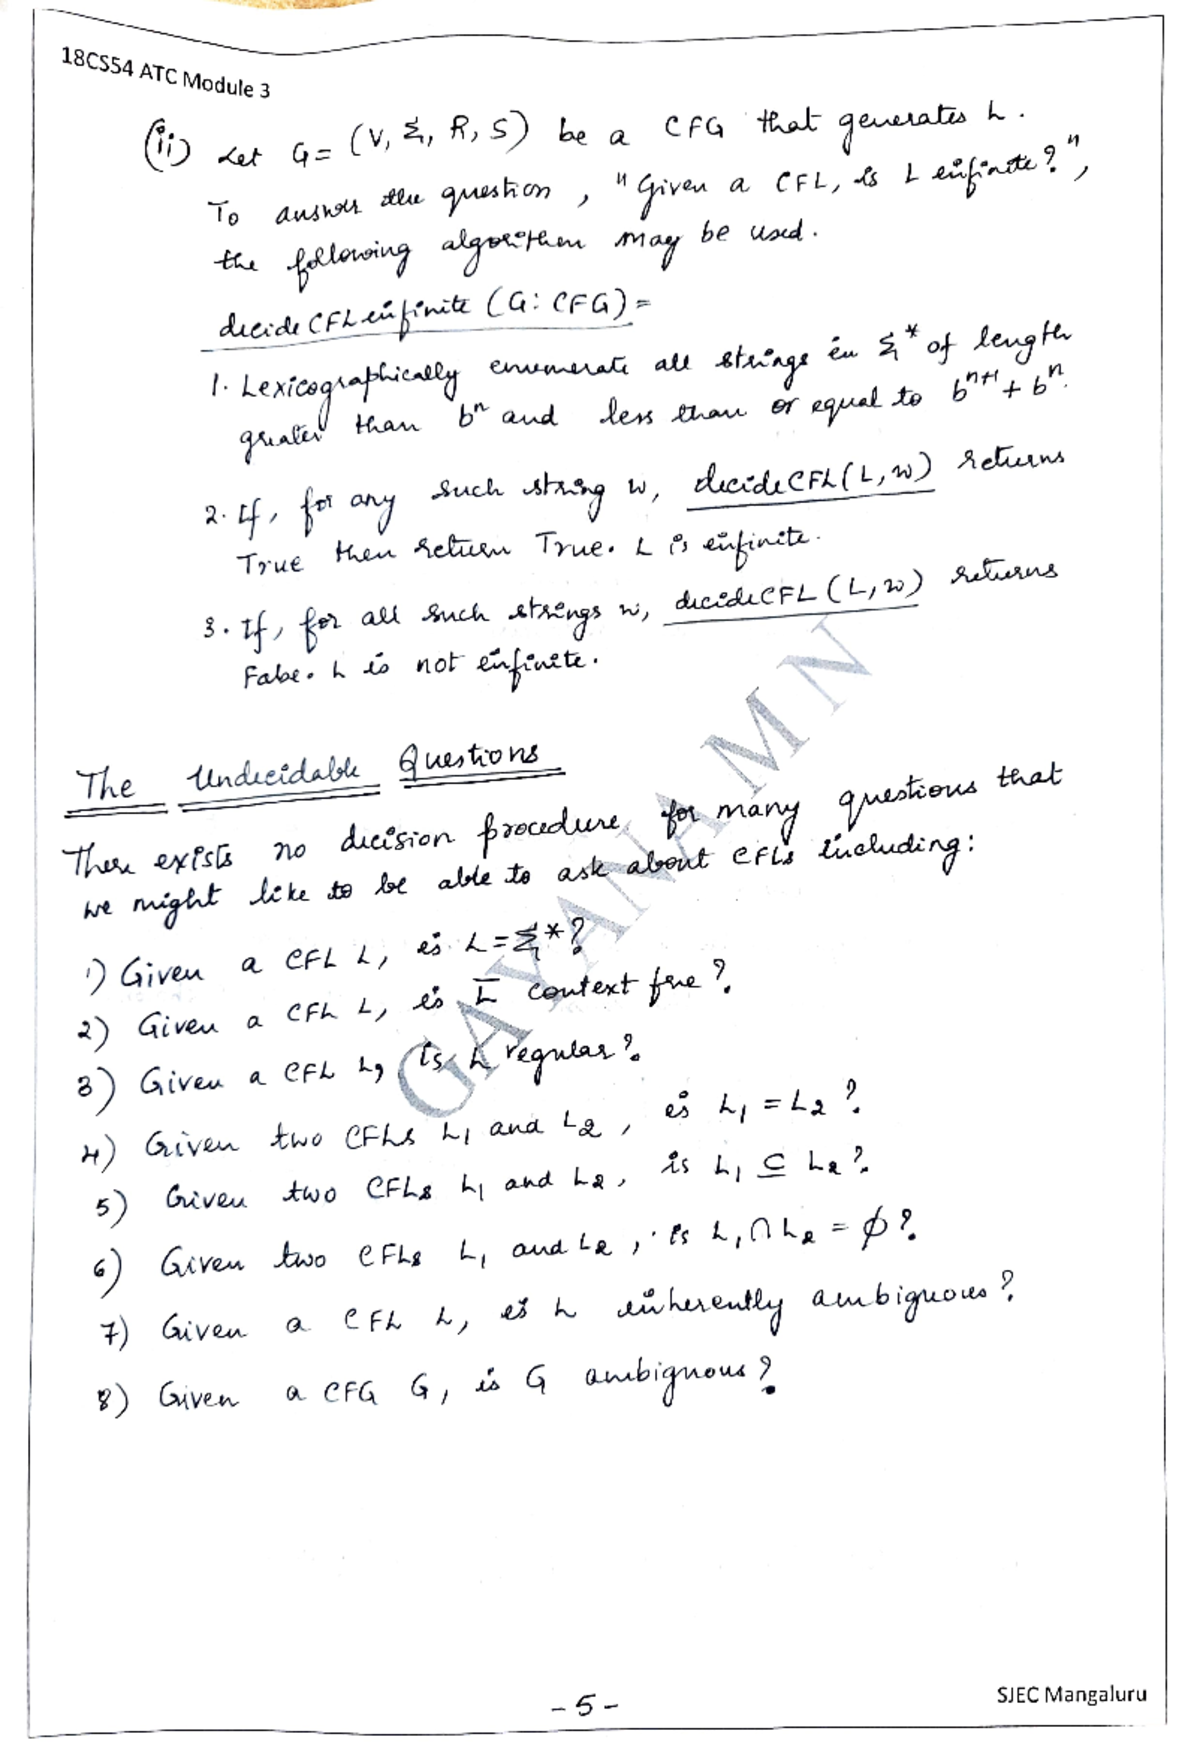 18CS54 ATC Module 3
(ii) Let G = (V, Σ, R, S) be a CFG that generates L.
To answer the question, "Given a CFL, is L infinite?",
the following algorithm may be used.
decideCFLinfinite (G: CFG) =
1. Lexicographically enumerate all strings in Σ* of length
greater than bⁿ and less than or equal to bⁿ⁺¹ + bⁿ.
2. If, for any such string w, decideCFL(L, w) returns
True then return True. L is infinite.
3. If, for all such strings w, decideCFL (L, w) returns
False. L is not infinite.
The Undecidable Questions
There exists no decision procedure for many questions that
we might like to be able to ask about CFLs including:
1) Given a CFL L, is L = Σ*?
2) Given a CFL L, is L̅ context free?
3) Given a CFL L, is L regular?
4) Given two CFLs L₁ and L₂, is L₁ = L₂?
5) Given two CFLs L₁ and L₂, is L₁ ⊆ L₂?
6) Given two CFLs L₁ and L₂, is L₁ ∩ L₂ = ϕ?
7) Given a CFL L, is L inherently ambiguous?
8) Given a CFG G, is G ambiguous?
GAYANA M N
- 5 -
SJEC Mangaluru